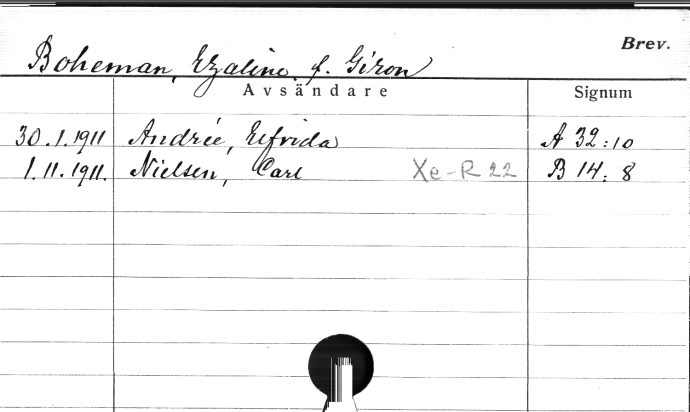 Brev.
Boheman, Ezaline f. Giron
Avsändare Signum
30.1.1911 Andrée, Elfrida A 32:10
1.11.1911. Nielsen, Carl Xe-R 22 B 14:8